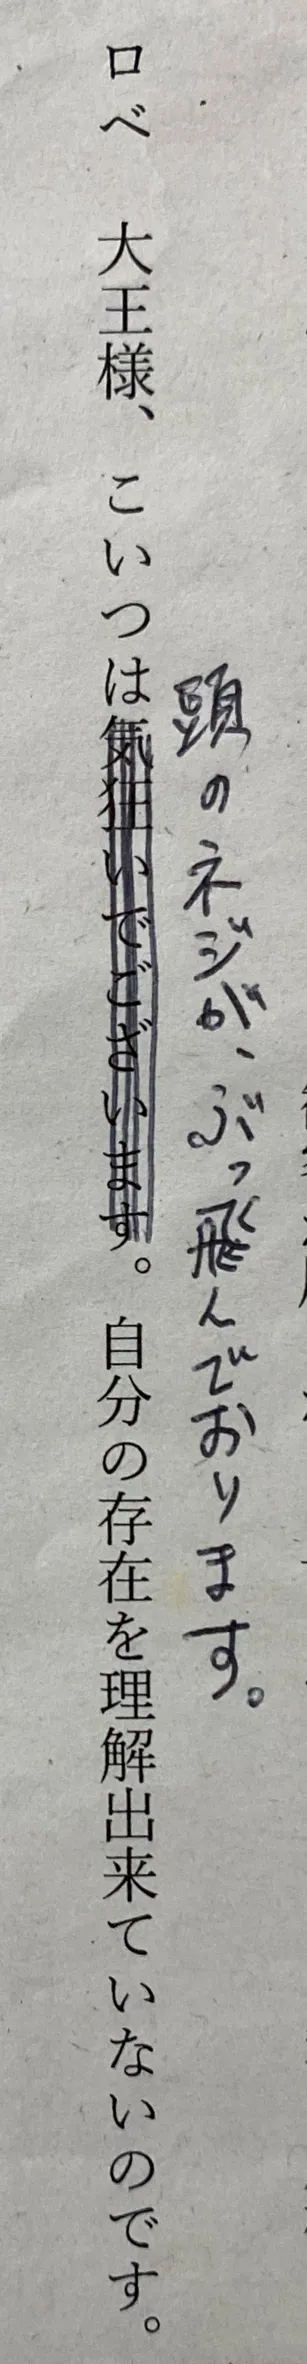 頭のネジが、ぶっ飛んでおります。
ロベ　大王様、こいつは気狂いでございます。自分の存在を理解出来ていないのです。